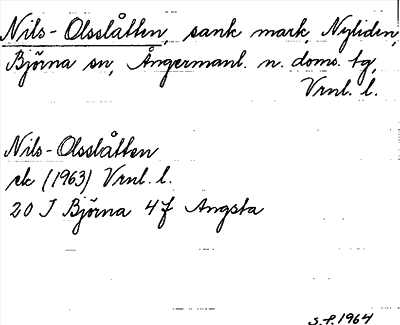 Nils-Olsslåtten, sank mark, Nyliden,
Björna sn, Ångermanl. n. doms. tg,
Vrnl. l.
Nils-Olsslåtten
ek (1963) Vrnl. l.
20 J Björna 4 f Angsta
S.P. 1964